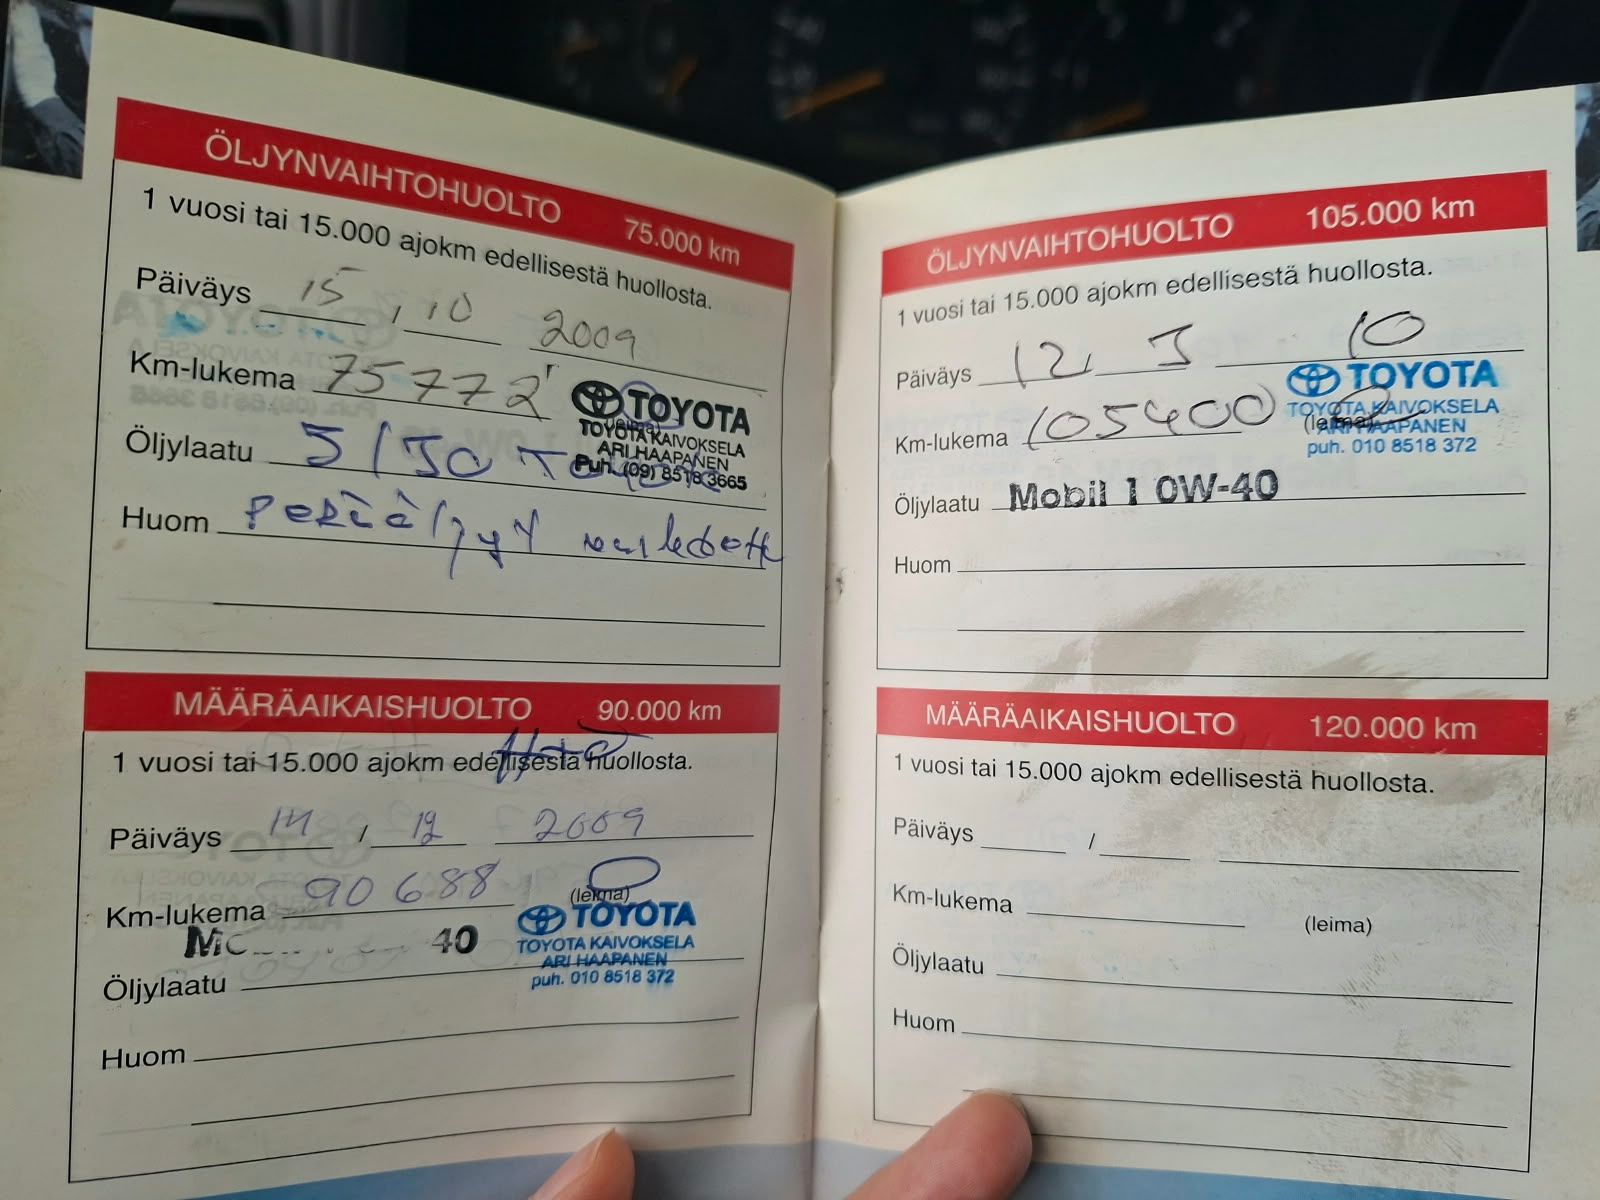 ÖLJYNVAIHTOHUOLTO 75.000 km
1 vuosi tai 15.000 ajokm edellisestä huollosta.
Päiväys 15 / 10 2009
Km-lukema 75772
TOYOTA
(leima)
TOYOTA KAIVOKSELA
ARI HAAPANEN
Puh. (09) 8518 3665
Öljylaatu 5/30
Huom Peräöljyt
MÄÄRÄAIKAISHUOLTO 90.000 km
1 vuosi tai 15.000 ajokm edellisestä huollosta.
Päiväys 14 / 12 2009
Km-lukema 90688
(leima)
TOYOTA
TOYOTA KAIVOKSELA
ARI HAAPANEN
puh. 010 8518 372
40
Öljylaatu
Huom
ÖLJYNVAIHTOHUOLTO 105.000 km
1 vuosi tai 15.000 ajokm edellisestä huollosta.
Päiväys 12 3 10
Km-lukema 105400
TOYOTA
TOYOTA KAIVOKSELA
(leima)
ARI HAAPANEN
puh. 010 8518 372
Öljylaatu Mobil 1 0W-40
Huom
MÄÄRÄAIKAISHUOLTO 120.000 km
1 vuosi tai 15.000 ajokm edellisestä huollosta.
Päiväys /
Km-lukema
(leima)
Öljylaatu
Huom